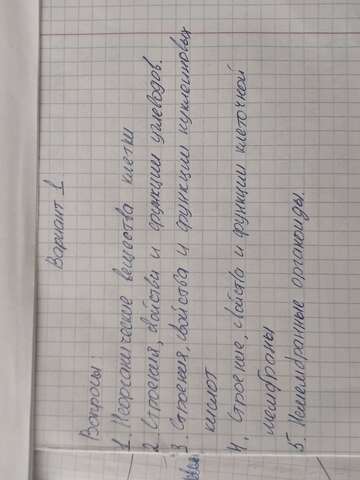 Вариант 1
Вопросы:
1. Неорганические вещества клетки
2. Строения, свойства и функции углеводов.
3. Строения, свойства и функции нуклеиновых
кислот
4. Строение, свойства и функции клеточной
мембраны
5. Немембранные органоиды.